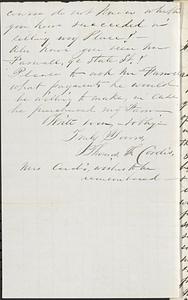 course do not know whether
you have succeeded in
selling my Place? -
Also have you seen Mr
Farwell of State St? -
Please to ask Mr Farwell
what payments he would
be willing to make in case
he purchased my Farm
Write soon, & oblige
Truly Yours,
Thomas F. Cordis,
Mrs Cordis, wishes to be
remembered